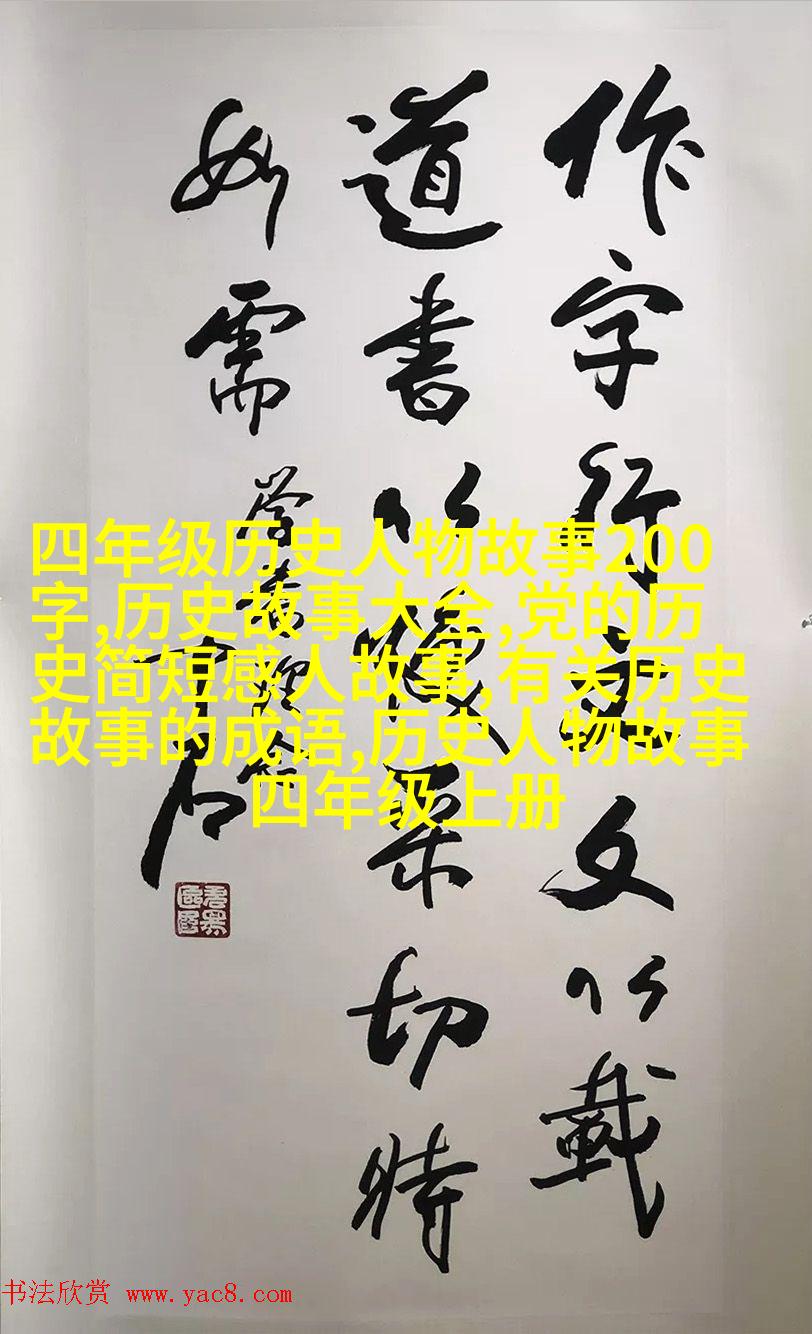 作字行文文以載
道書以焕采切時
需
学書
四年级历史人物故事200
字,历史故事大全,党的历
史简短感人故事,有关历史
故事的成语,历史人物故事
四年级上册
书法欣赏 www.yac8.com